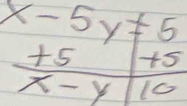 x - 5y = 5
+5 +5
x - y 10